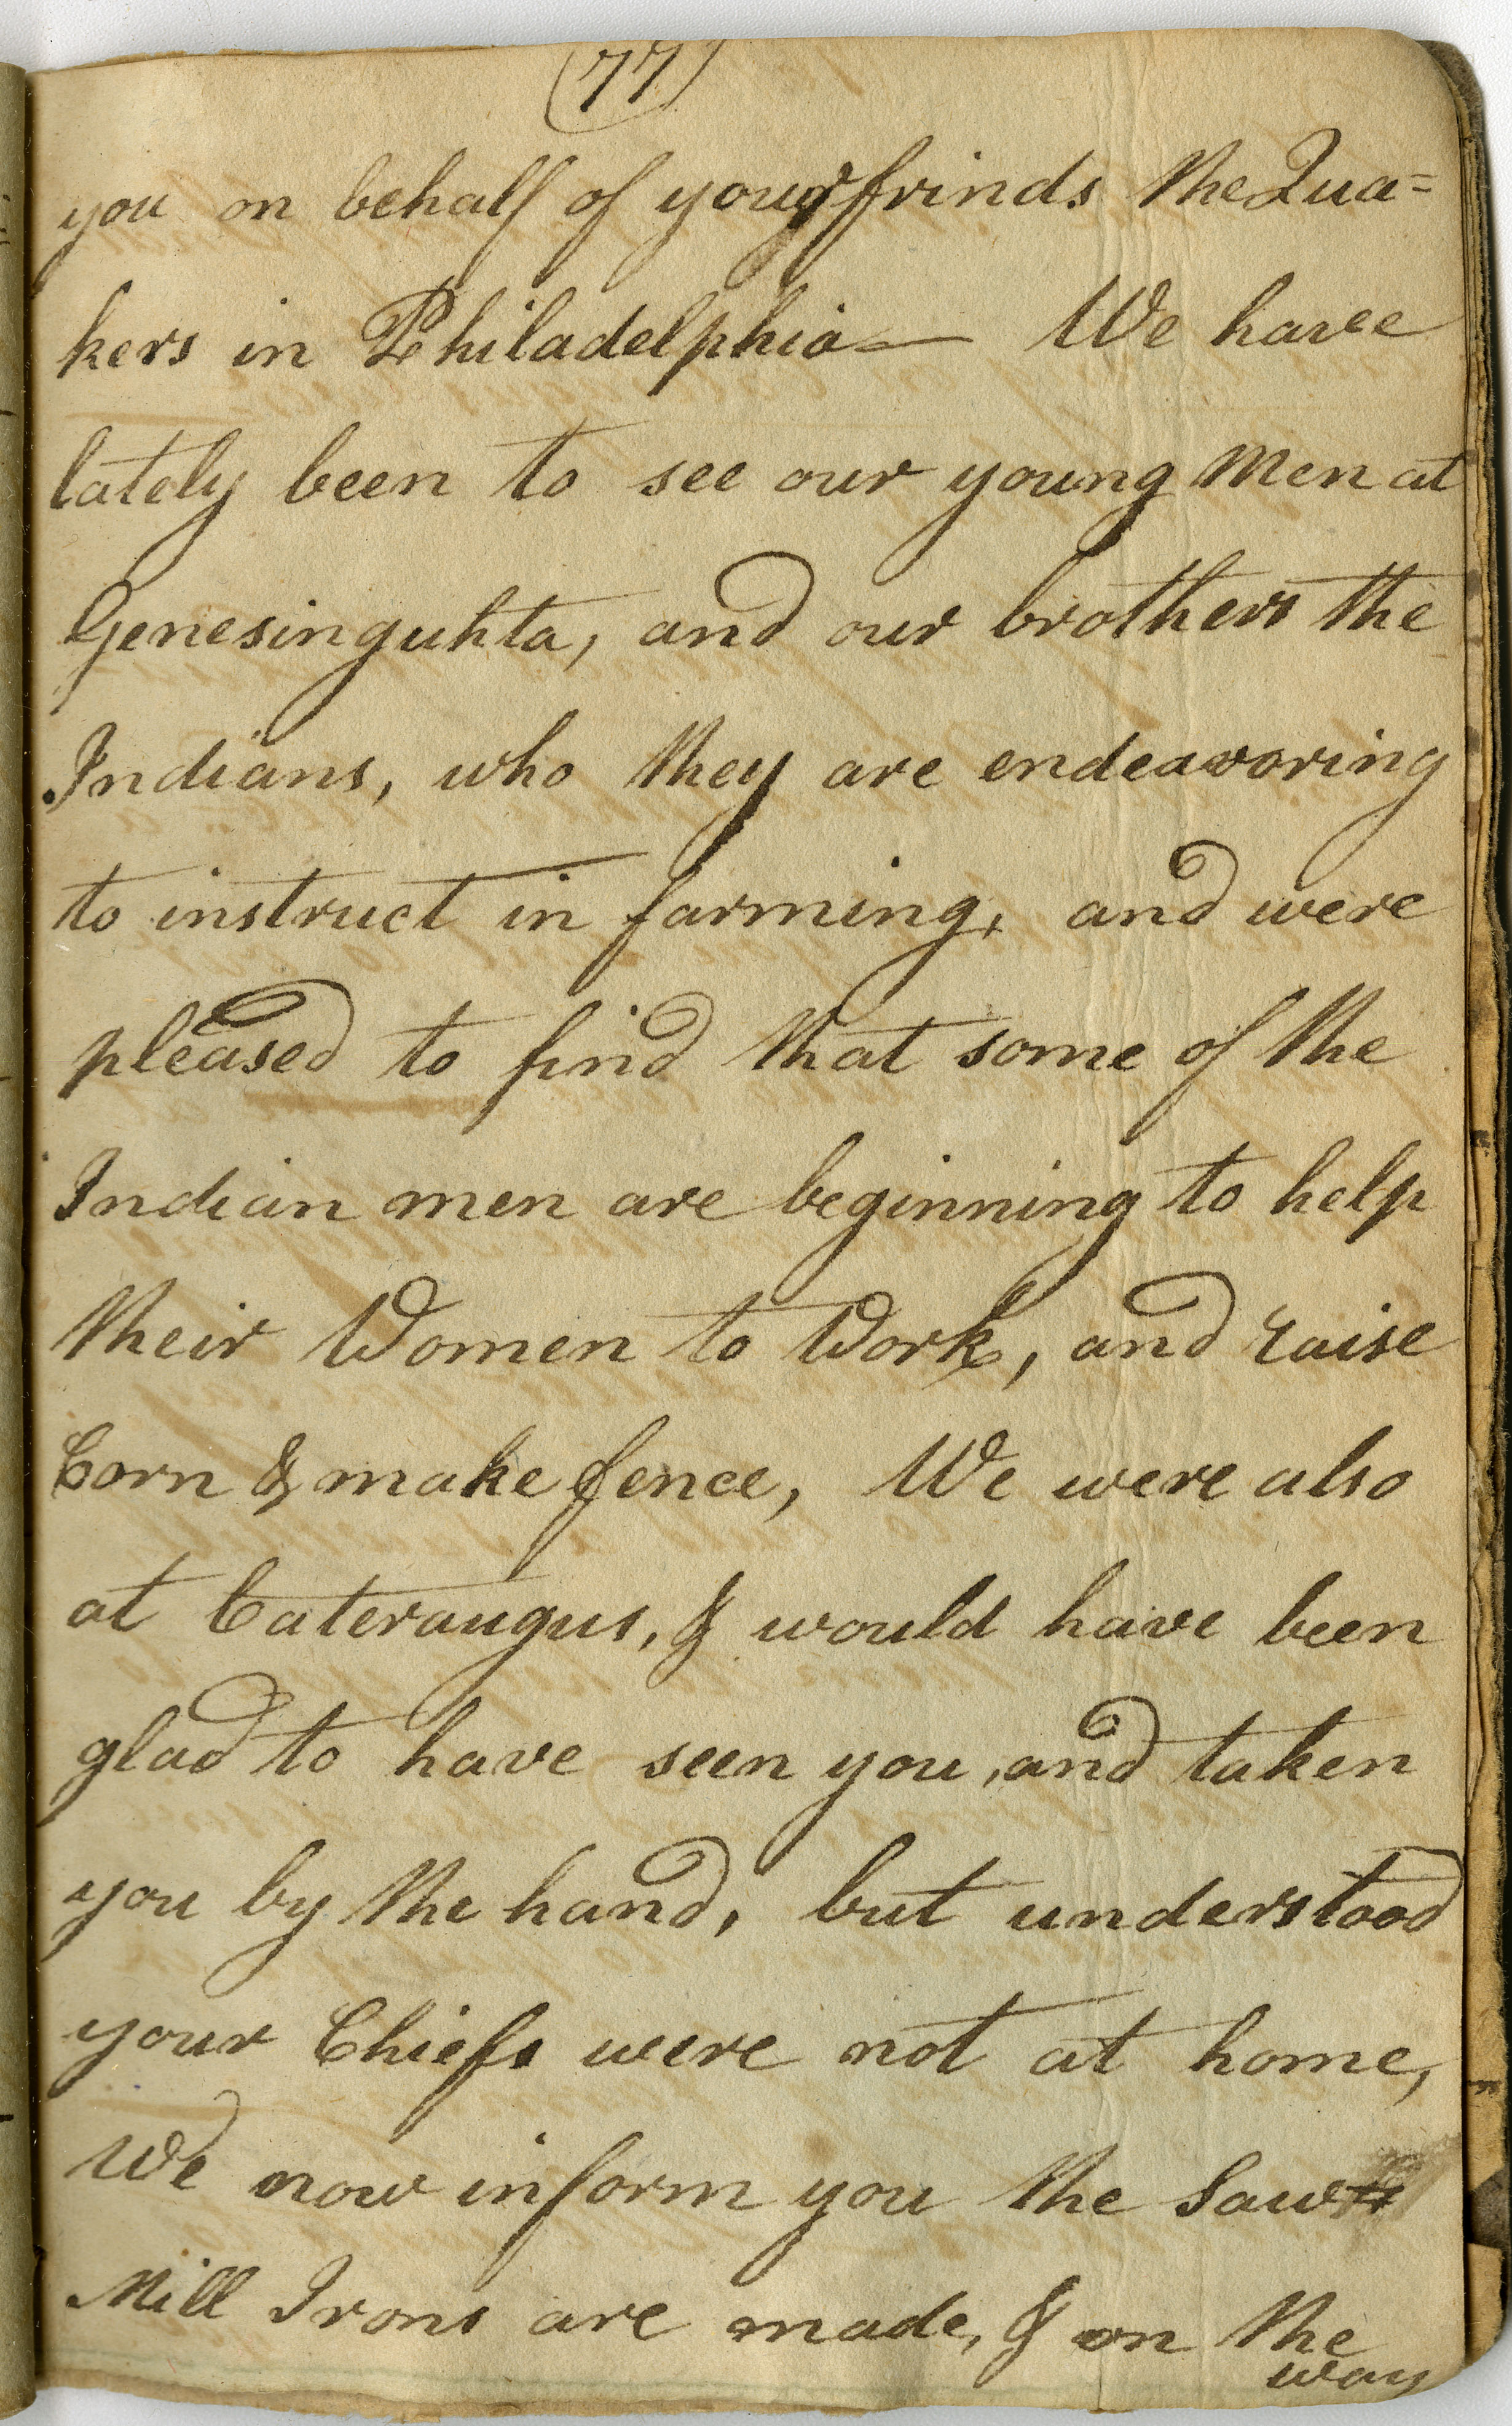 (77)
you on behalf of your frinds the Qua=
kers in Philadelphia— We have
lately been to see our young Men at
Genesinguhta, and our brothers the
Indians, who they are endeavoring
to instruct in farming, and were
pleased to find that some of the
Indian men are beginning to help
their Women to Work, and raise
Corn & make fence, We were also
at Cateraugus, & would have been
glad to have seen you, and taken
you by the hand, but understood
your Chiefs were not at home,
We now inform you the Saw
Mill Irons are made, & on the
way